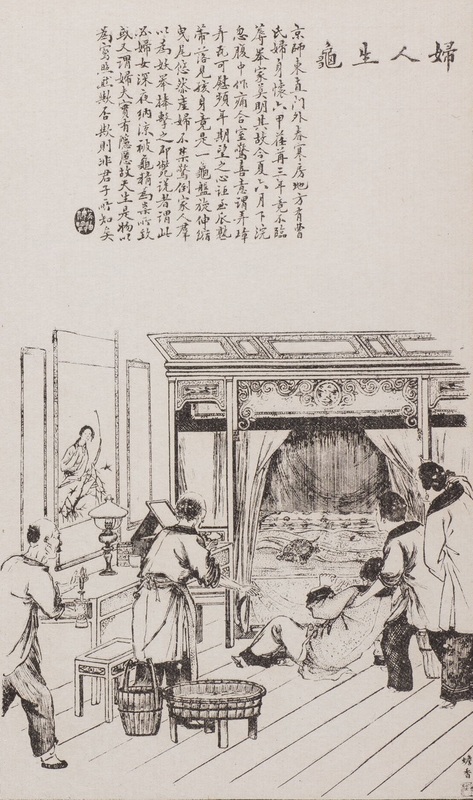 婦人生龜
京師東直門外春寒房地方有曾
氏婦身懷六甲荏苒三年竟不臨
蓐舉家莫明其故今夏六月下浣
忽腹中作痛合室驚喜意謂弄璋
弄瓦可慰頻年期望之心詎瓜熟
蒂落見孩身竟是一龜盤旋伸縮
曳尾悠然產婦不禁驚倒家人羣
以為妖舉棒擊之即斃說者謂此
必婦女深夜納涼被龜精為祟所致
或又謂婦夫實有隱慝故天生是物以
為寫照然歟否歟則非君子所知矣
蟾香